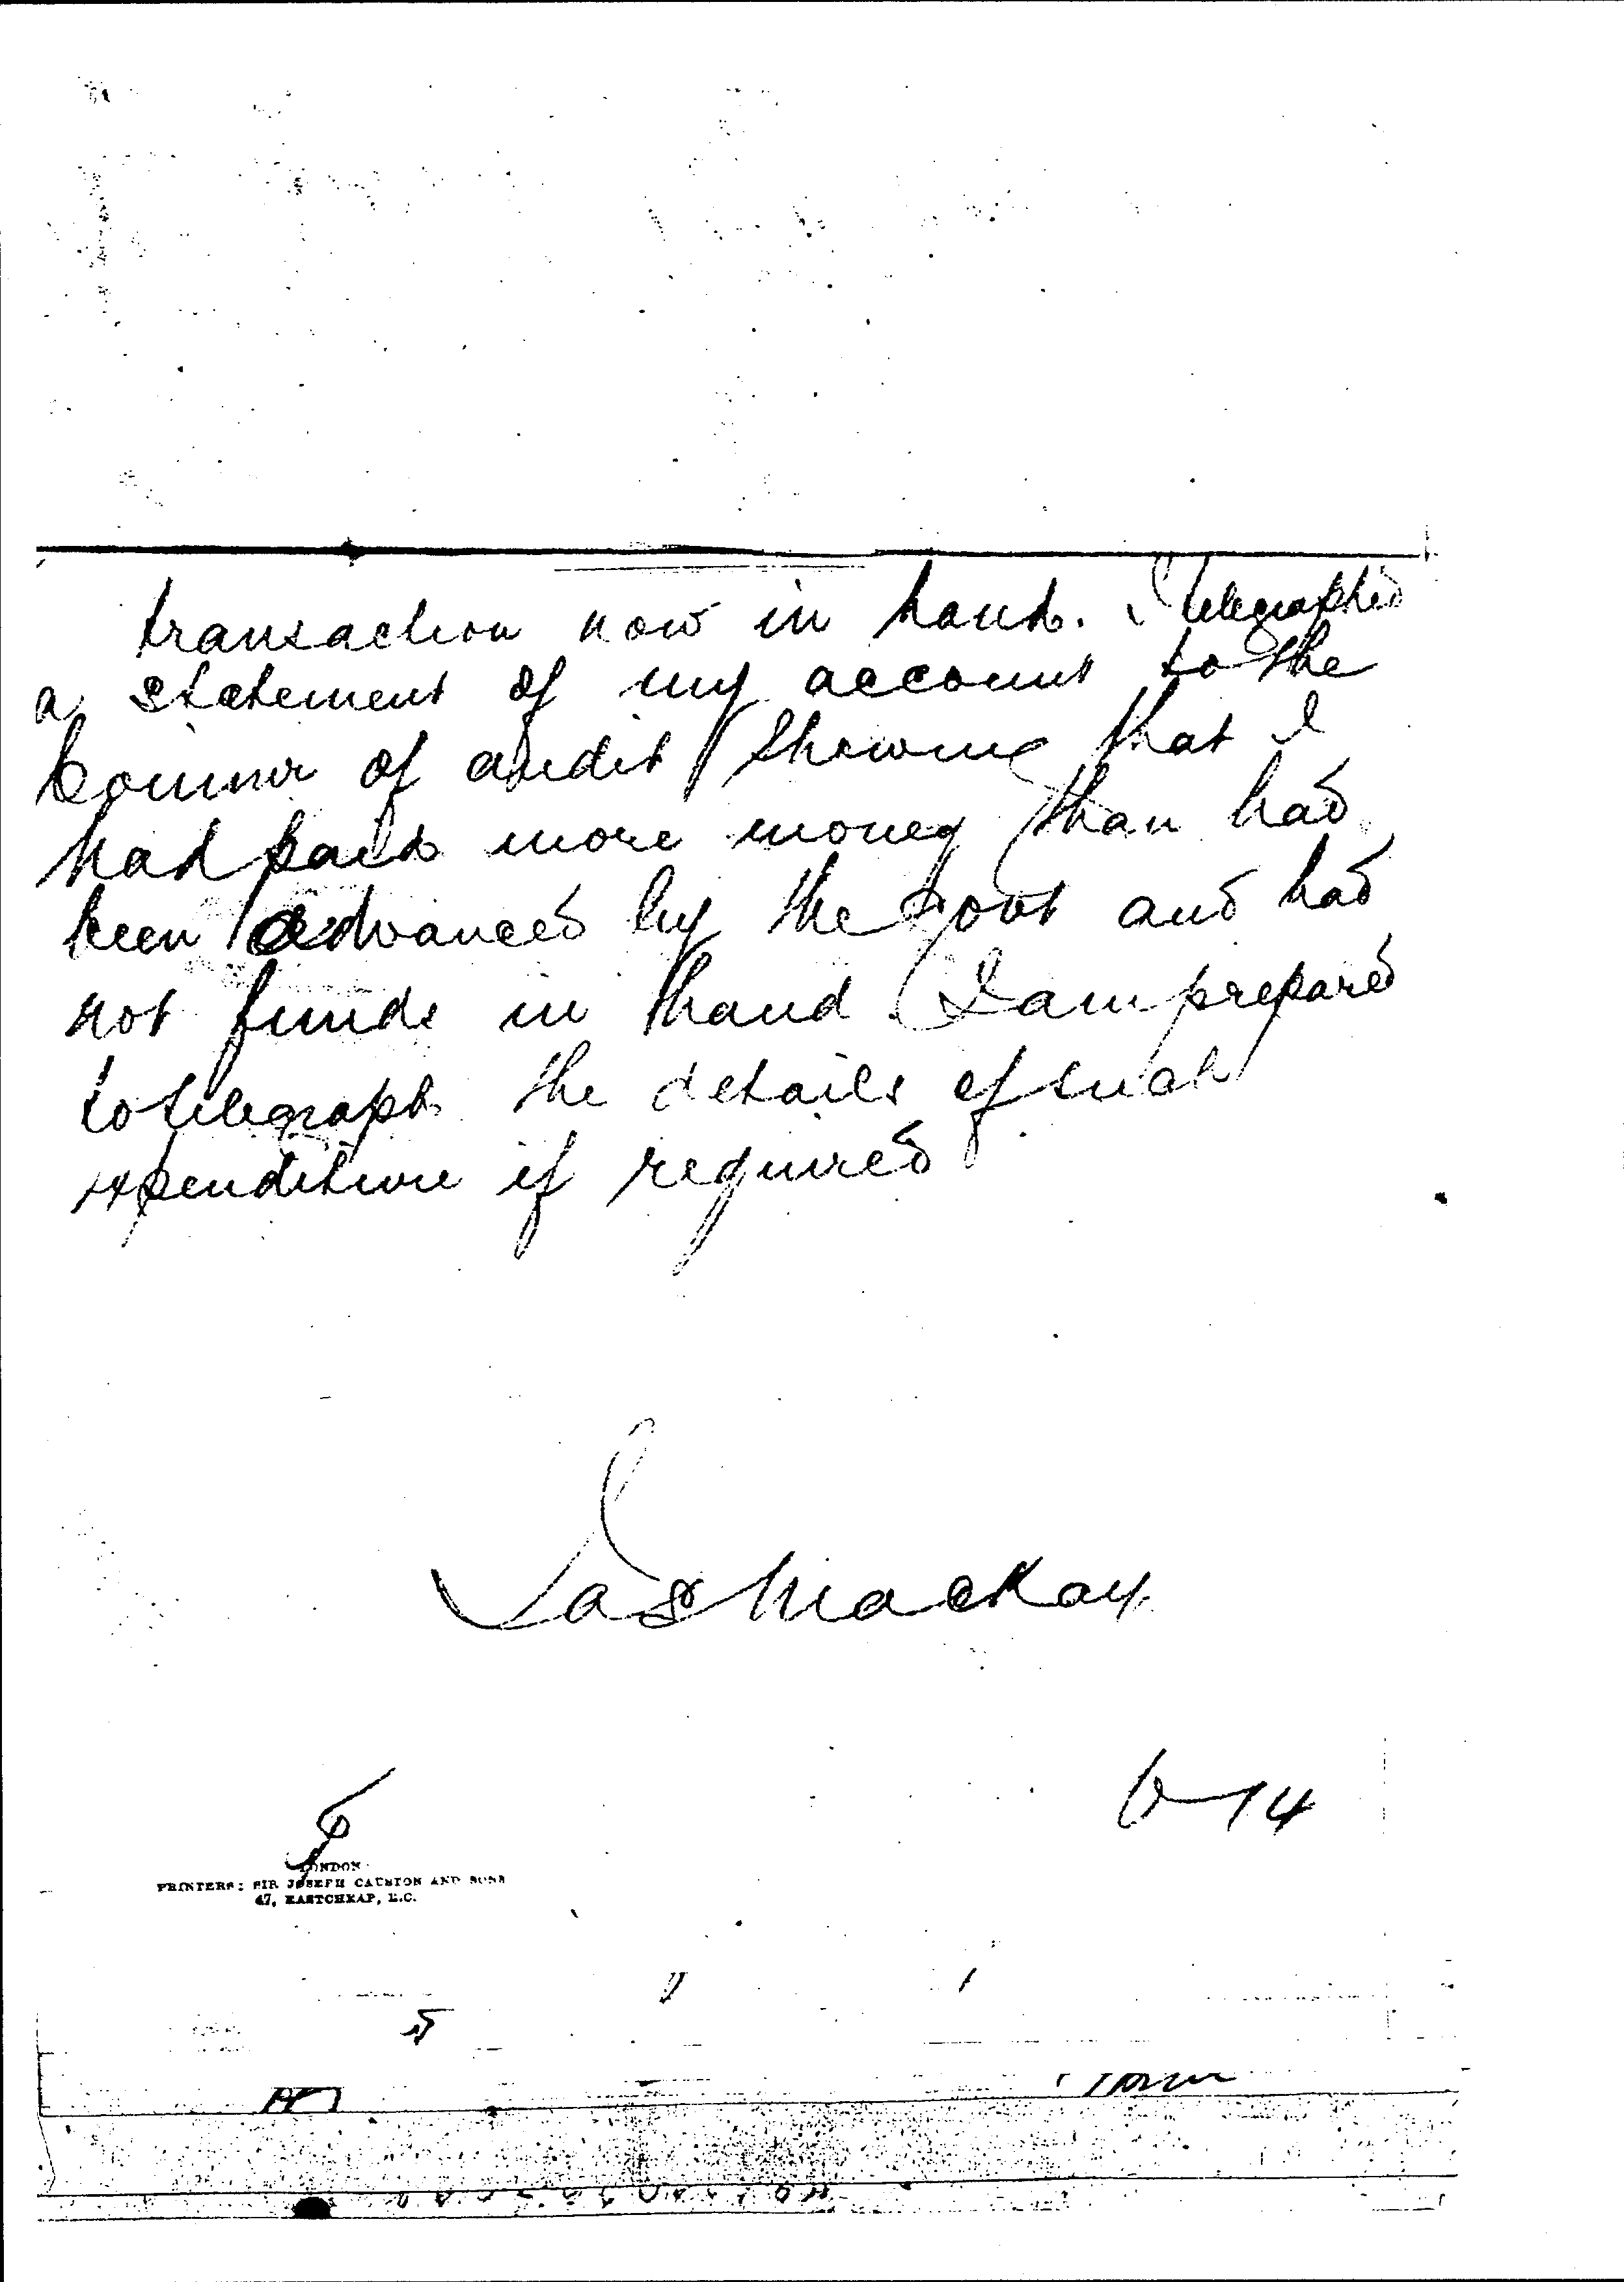 transaction now in hand. I telegraphed
a statement of my account to the
Commr of audit showing that I
had paid more money than had
been advanced by the Govt and had
not funds in hand I am prepared
to telegraph the details of such
expenditure if required
Jas Mackay
LONDON
PRINTERS: SIR JOSEPH CAUSTON AND SONS
47, EASTCHEAP, E.C.